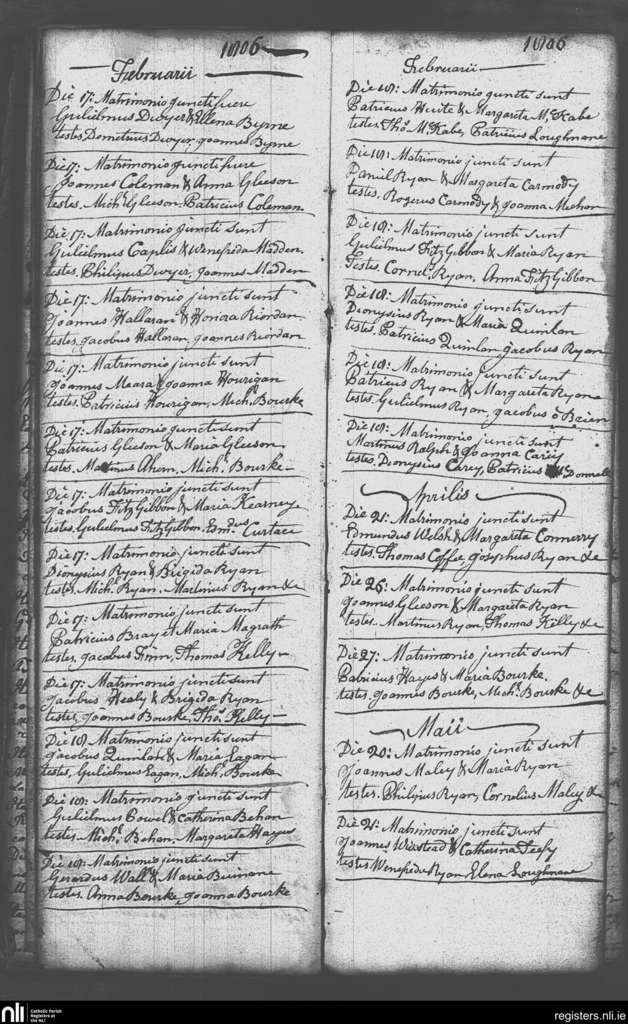 1806
Februarii
Die 17: Matrimonio juncti fuere
Gulielmus Dwyer & Ellena Byrne
testes, Demetrius Dwyer, Joannes Byrne
Die 17: Matrimonio juncti fuere
Joannes Coleman & Anna Gleeson
testes. Michl Gleeson. Patricius Coleman
Die 17: Matrimonio juncti sunt
Gulielmus Caplis & Wenefreda Madden.
testes. Philipus Dwyer, Joannes Madden
Die 17: Matrimonio juncti sunt
Joannes Hallaran & Honora Riordan
testes, Jacobus Hallaran, Joannes Riordan
Die 17: Matrimonio juncti sunt
Joannes Meara & Joanna Hourigan
testes. Patricius Hourigan, Michl Bourke
Die 17: Matrimonio juncti sunt
Patricius Gleeson & Maria Gleeson
testes. Martinus Ahern, Michl Bourke
Die 17: Matrimonio juncti sunt
Jacobus FitzGibbon & Maria Kearney
testes, Gulielmus FitzGibbon. Edmdus
Die 17: Matrimonio juncti sunt
Dionysius Ryan & Brigida Ryan
testes, Michl Ryan, Martinus Ryan &c
Die 17: Matrimonio juncti sunt
Patricius Bray et Maria Magrath
testes, Jacobus Finn, Thomas Kelly
Die 17: Matrimonio juncti sunt
Jacobus Healy & Brigida Ryan
testes, Joannes Bourke, Thos Kelly
Die 18 Matrimonio juncti sunt
Jacobus Quinlan & Maria Eagan
testes, Gulielmus Eagan, Michl Bourke
Die 18: Matrimonio juncti sunt
Gulielmus & Catherina Behan
testes. Michl Behan, Margareta Hayes
Die 18: Matrimonio juncti sunt
Gerardus Wall & Maria
testes. Anna Bourke, Joanna Bourke
1806
Februarii
Die 18: Matrimonio juncti sunt
Patricius & Margareta McKabe
testes, Thos McKabe, Patricius Loughnane
Die 18: Matrimonio juncti sunt
Daniel Ryan & Margareta Carmody
testes, Rogerus Carmody & Joanna Meehan
Die 18: Matrimonio juncti sunt
Gulielmus FitzGibbon & Maria Ryan
Testes. Cornels Ryan, Anna FitzGibbon
Die 18: Matrimonio juncti sunt
Dionysius Ryan & Maria Quinlan
testes, Patricius Quinlan Jacobus Ryan
Die 18: Matrimonio juncti sunt
Patricius Ryan & Margareta Ryan
testes. Gulielmus Ryan, Jacobus ô Brien
Die 18: Matrimonio juncti sunt
Martinus Ralph & Joanna Carey
testes. Dionysius Carey, Patricius McDonnell
Aprilis
Die 21: Matrimonio juncti sunt
Edmundus Welsh & Margareta Connerry
testes. Thomas Coffee Josephus Ryan &c
Die 26: Matrimonio juncti sunt
Joannes Gleeson & Margareta Ryan
testes. Martinus Ryan, Thomas Kelly &c
Die 27: Matrimonio juncti sunt
Patricius Hayes & Maria Bourke.
testes. Joannes Bourke, Michl Bourke &c
Maii
Die 20: Matrimonio juncti sunt
Joannes Maley & Maria Ryan
testes. Philipus Ryan, Cornelius Maley &c
Die 21: Matrimonio juncti sunt
Joannes & Catherina
testes Wenefreda Ryan Elena Loughnane
nli
Catholic Parish
Registers at
the NLI
registers.nli.ie